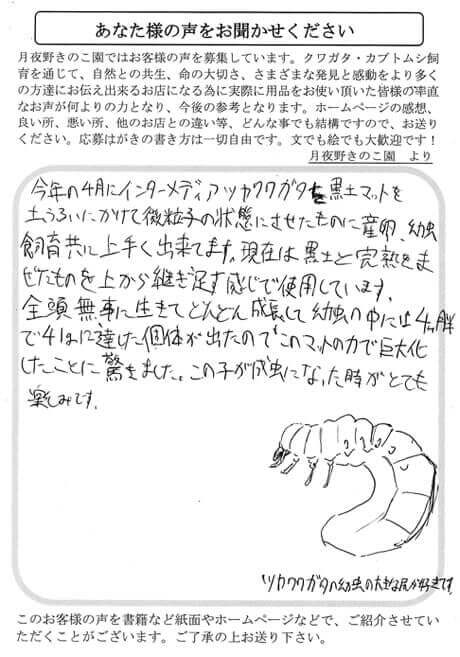 あなた様の声をお聞かせください
月夜野きのこ園ではお客様の声を募集しています。クワガタ・カブトムシ飼
育を通じて、自然との共生、命の大切さ、さまざまな発見と感動をより多く
の方達にお伝え出来るお店になる為に実際に用品をお使い頂いた皆様の率直
なお声が何よりの力となり、今後の参考となります。ホームページの感想、
良い所、悪い所、他のお店との違い等、どんな事でも結構ですので、お送り
ください。応募はがきの書き方は一切自由です。文でも絵でも大歓迎です！
月夜野きのこ園　より
今年の4月にインターメディアツヤクワガタを黒土マットを
土ふるいにかけて微粒子の状態にさせたものに産卵、幼虫
飼育共に上手く出来てます。現在は黒土と完熟をま
ぜたものを上から継ぎ足す感じで使用しています。
全頭無事に生きてどんどん成長して幼虫の中には4ヵ月半
で41gに達した個体が出たのでこのマットの力で巨大化
したことに驚きました。この子が成虫になった時がとても
楽しみです。
ツヤクワガタの幼虫の大きな尻が好きです
このお客様の声を書籍など紙面やホームページなどで、ご紹介させてい
ただくことがございます。ご了承の上お送り下さい。